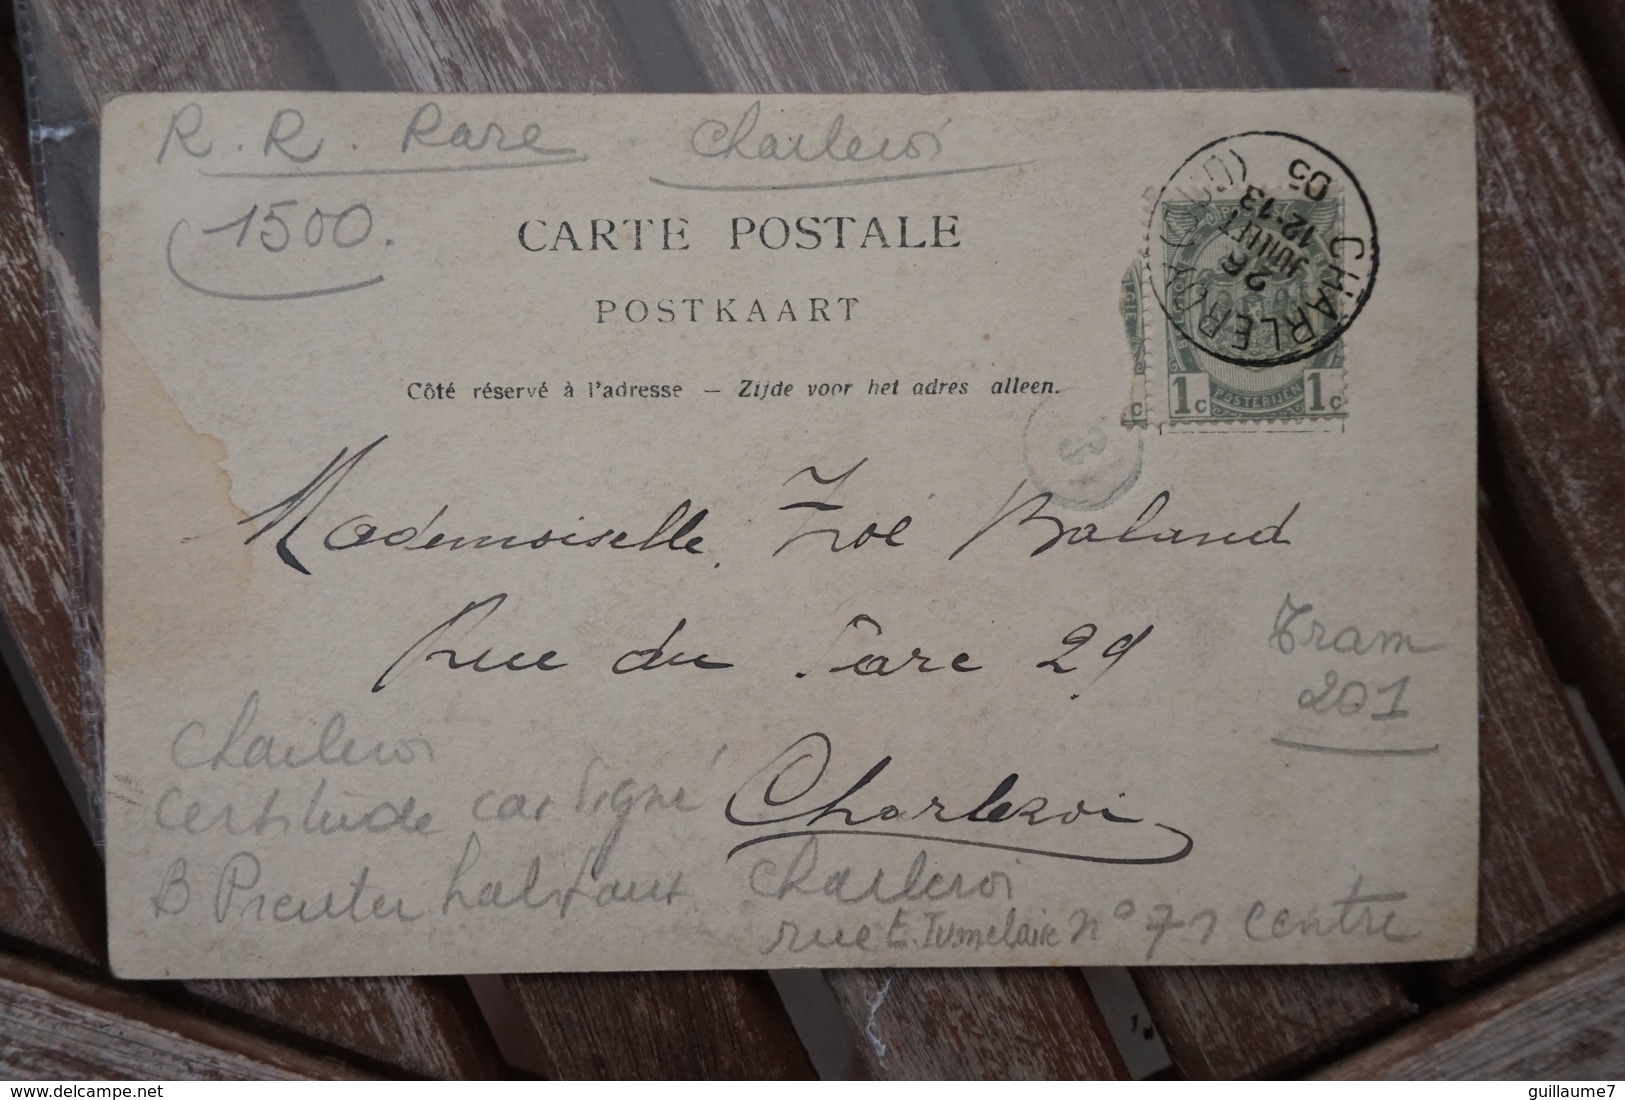 R. R. Rare Charleroi
1500.
CARTE POSTALE
POSTKAART
Côté réservé à l'adresse — Zijde voor het adres alleen.
CHARLEROI
26
JUILLET
12-13
05
1c POSTERIJEN 1c
Mademoiselle Zoé Baland
Rue du Parc 29
Charleroi
Tram
201
Charleroi
Certitude car signé
B habitant Charleroi
rue n° 71 centre
delcampe.net
guillaume7